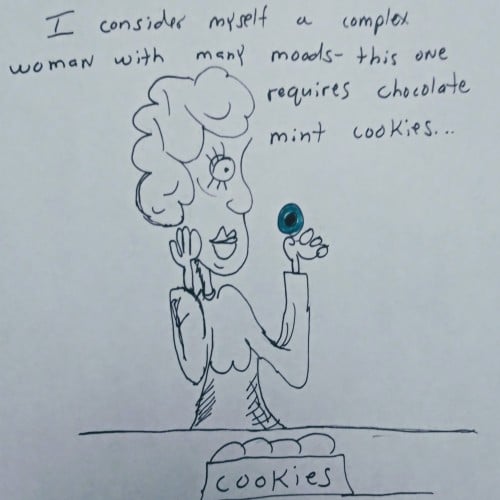 I consider myself a complex
woman with many moods- this one
requires chocolate
mint cookies...
COOKIES